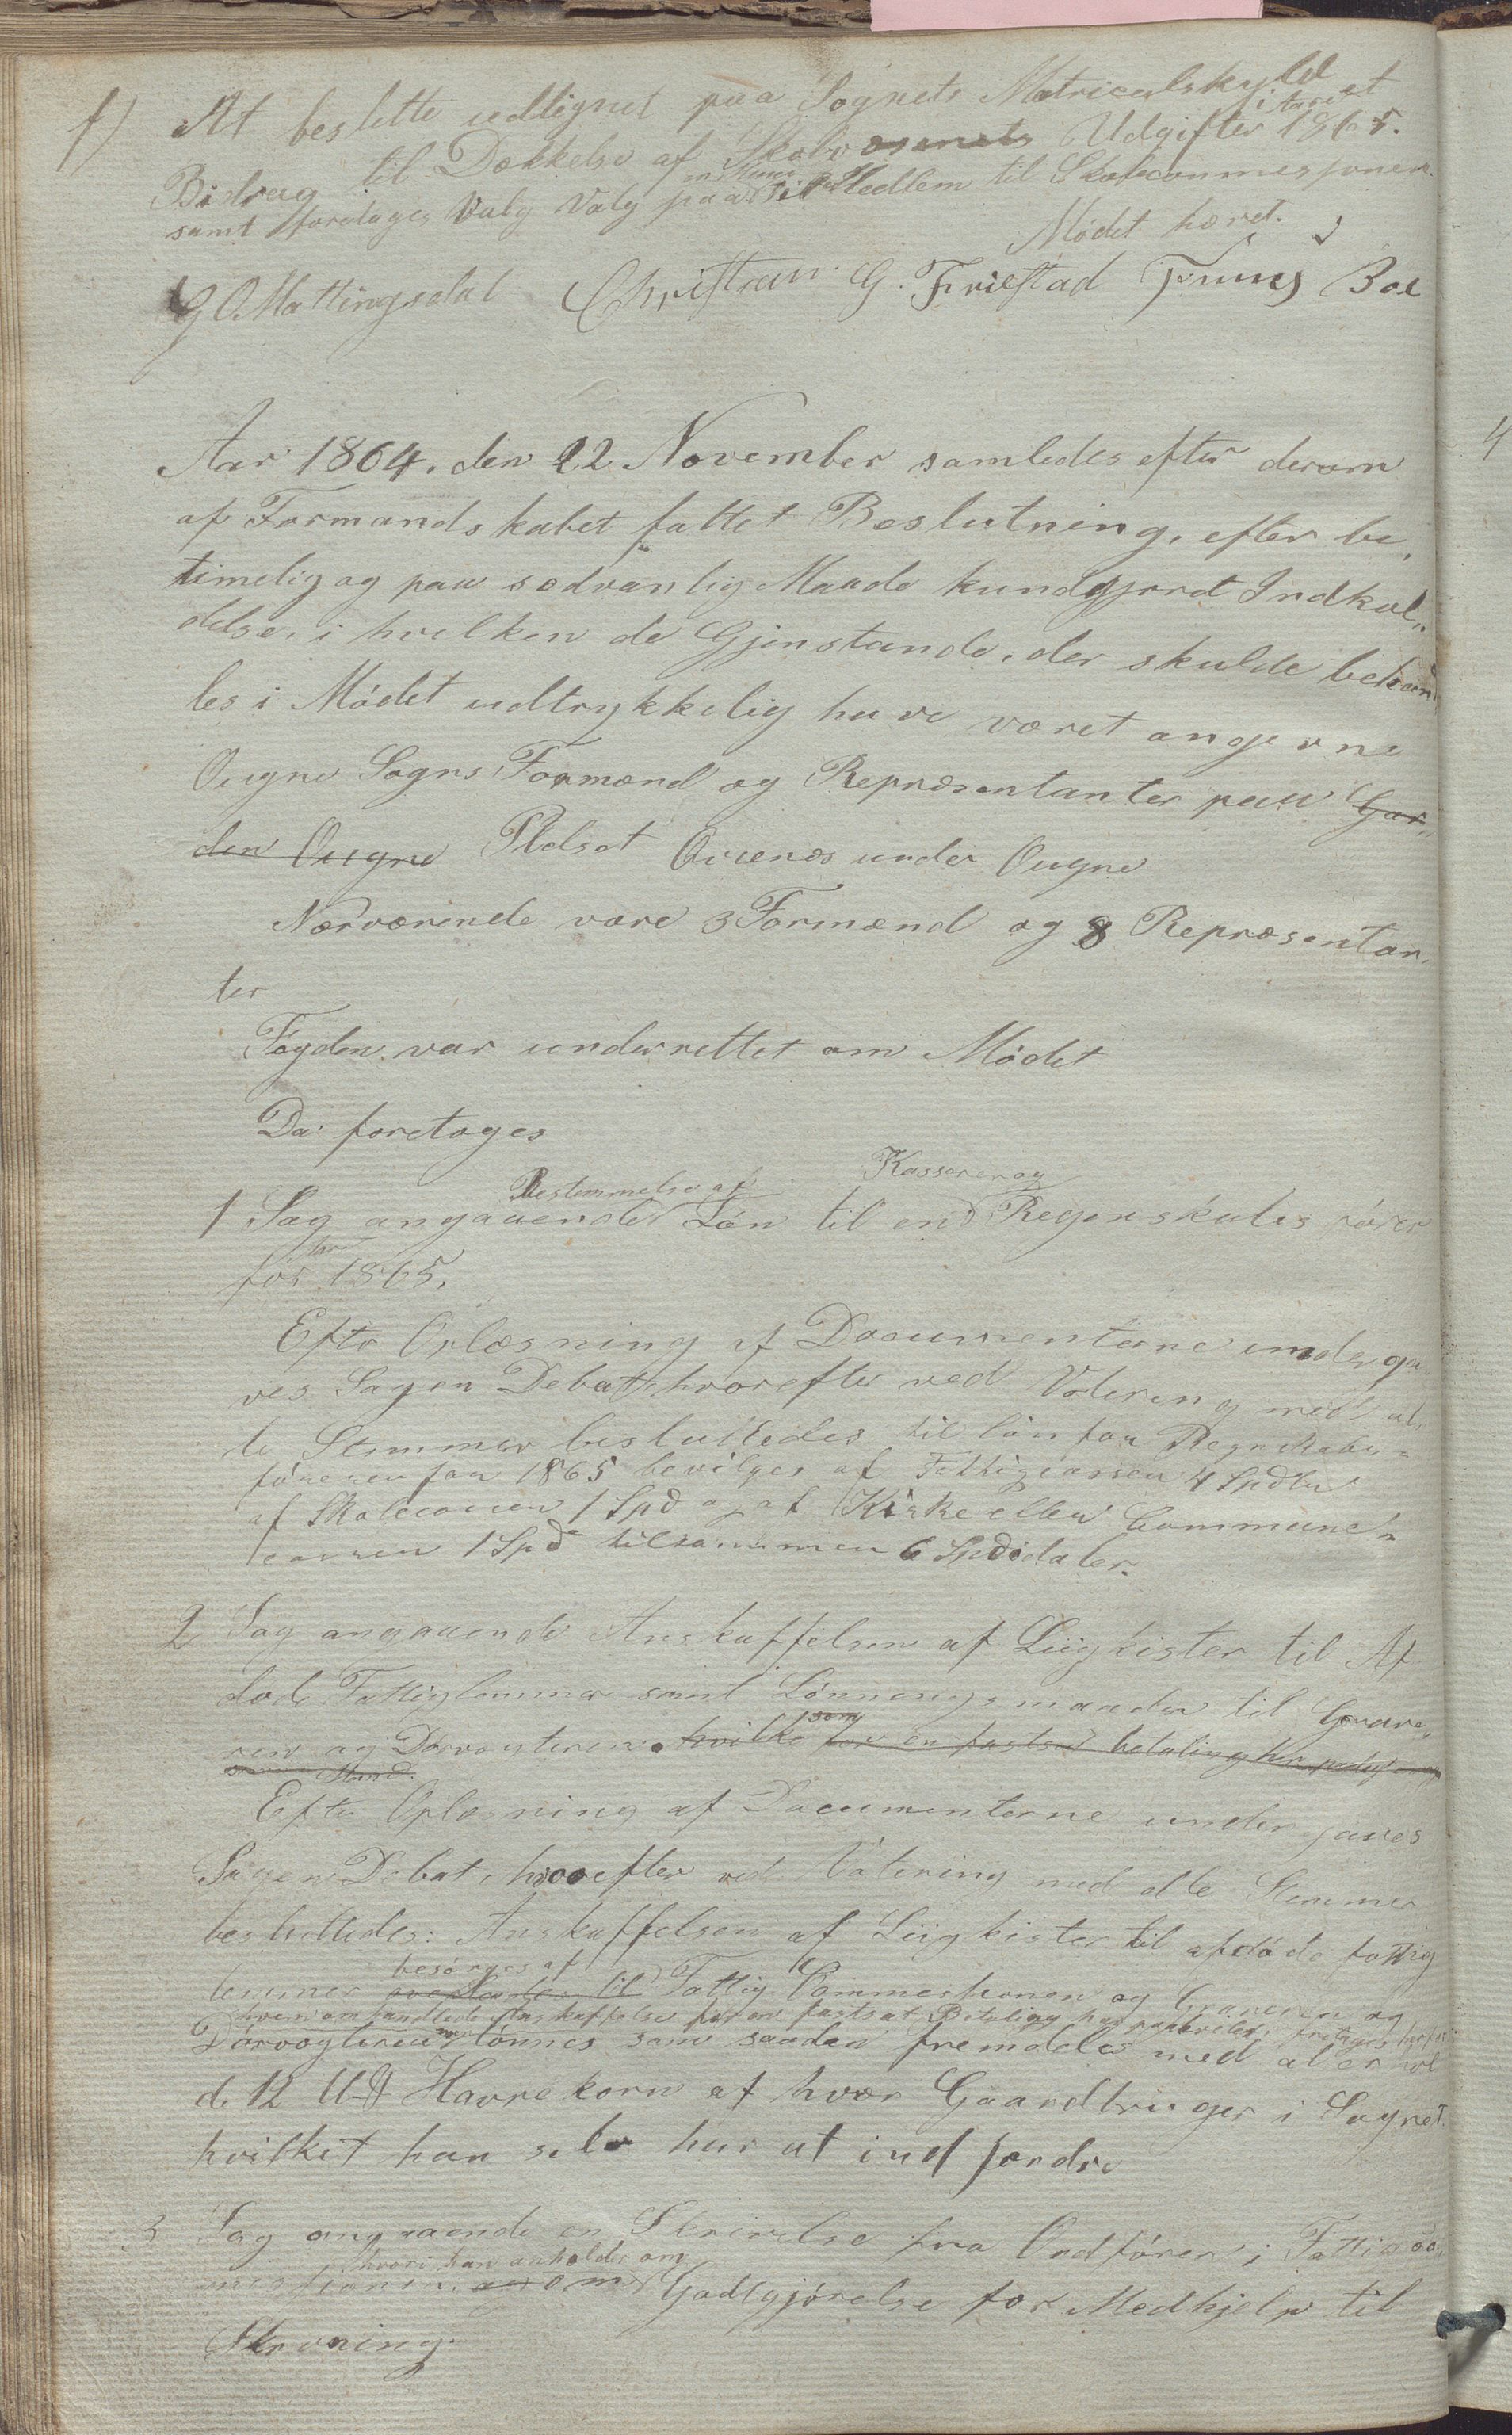 f) At beslutte udlignet paa Sognets Matriculskyld et
Bidrag til Dækkelse af Skolevæsenets Udgifter i Aaret 1865.
samt foretages Valg Valg paa en Mand til Medlem til Skolecommissjonen.
Mødet hævet.
G O Mattingsdal Christian G. Friestad Tønnes Boe
Aar 1864, den 22 November samledes efter derom
af Formandskabet fattet Beslutning, efter be„
timelig og paa sædvanlig Maade kundgjort Indkal„
delse, i hvilken de Gjenstande, der skulde behand„
les i Mødet udtrykkelig have været angivne
Ougne Sogns Formænd og Repræsentanter paa Gar„
den Ougne Pladset Ovienes under Ougne
Nærværende vare 3 Formænd og 8 Repræsentan„
ter
Fogden var underrettet om Mødet
Da foretoges
1 Sag angaaende Bestemmelse af Løn til en Kasserer og Regenskabsfører
for Aar 1865.
Efter Oplæsning af Documenterne underga
ves Sagen Debat, hvorefter ved Votering med al„
le Stemmer besluttedes til løn for Regnskabs„
føreren for 1865 bevilges af Fattigcassen 4 Spdlr
af Skolecassen 1 Spd og af Kirke eller Commune„
cassen 1 Spd tilsammen 6 Spdidaler.
2 Sag angaaende Anskaffelsen af Liigkister til Af
døde Fattiglemmer samt Lønningsmaaden til Grave„
ren og Dørvogteren. hvilke som for en fastsat betaling har
Stand.
Efter Oplæsning af Documenterne undergaves
Sagen Debat, hvorefter ved Votering med alle Stemmer
besluttedes: Anskaffelsen af Liigkister til afdøde fattig
lemmer overlades til besørges af Fattig Commissionen og Graveren og
hvem om handlede Anskaffelse for en fastsat Betaling har
Dørvogteren lønnes som saadan fremdeles med at erhol
de 12 U₰ Havrekorn af hver Gaardbruger i Sognet
hvilket han selv har at indfordre
3 Sag angaaende en Skrivelse fra Ordfører i Fattigco„
missionen, og om hvori han anholder om Godtgjørelse for Medhjelp til
Skrivning.